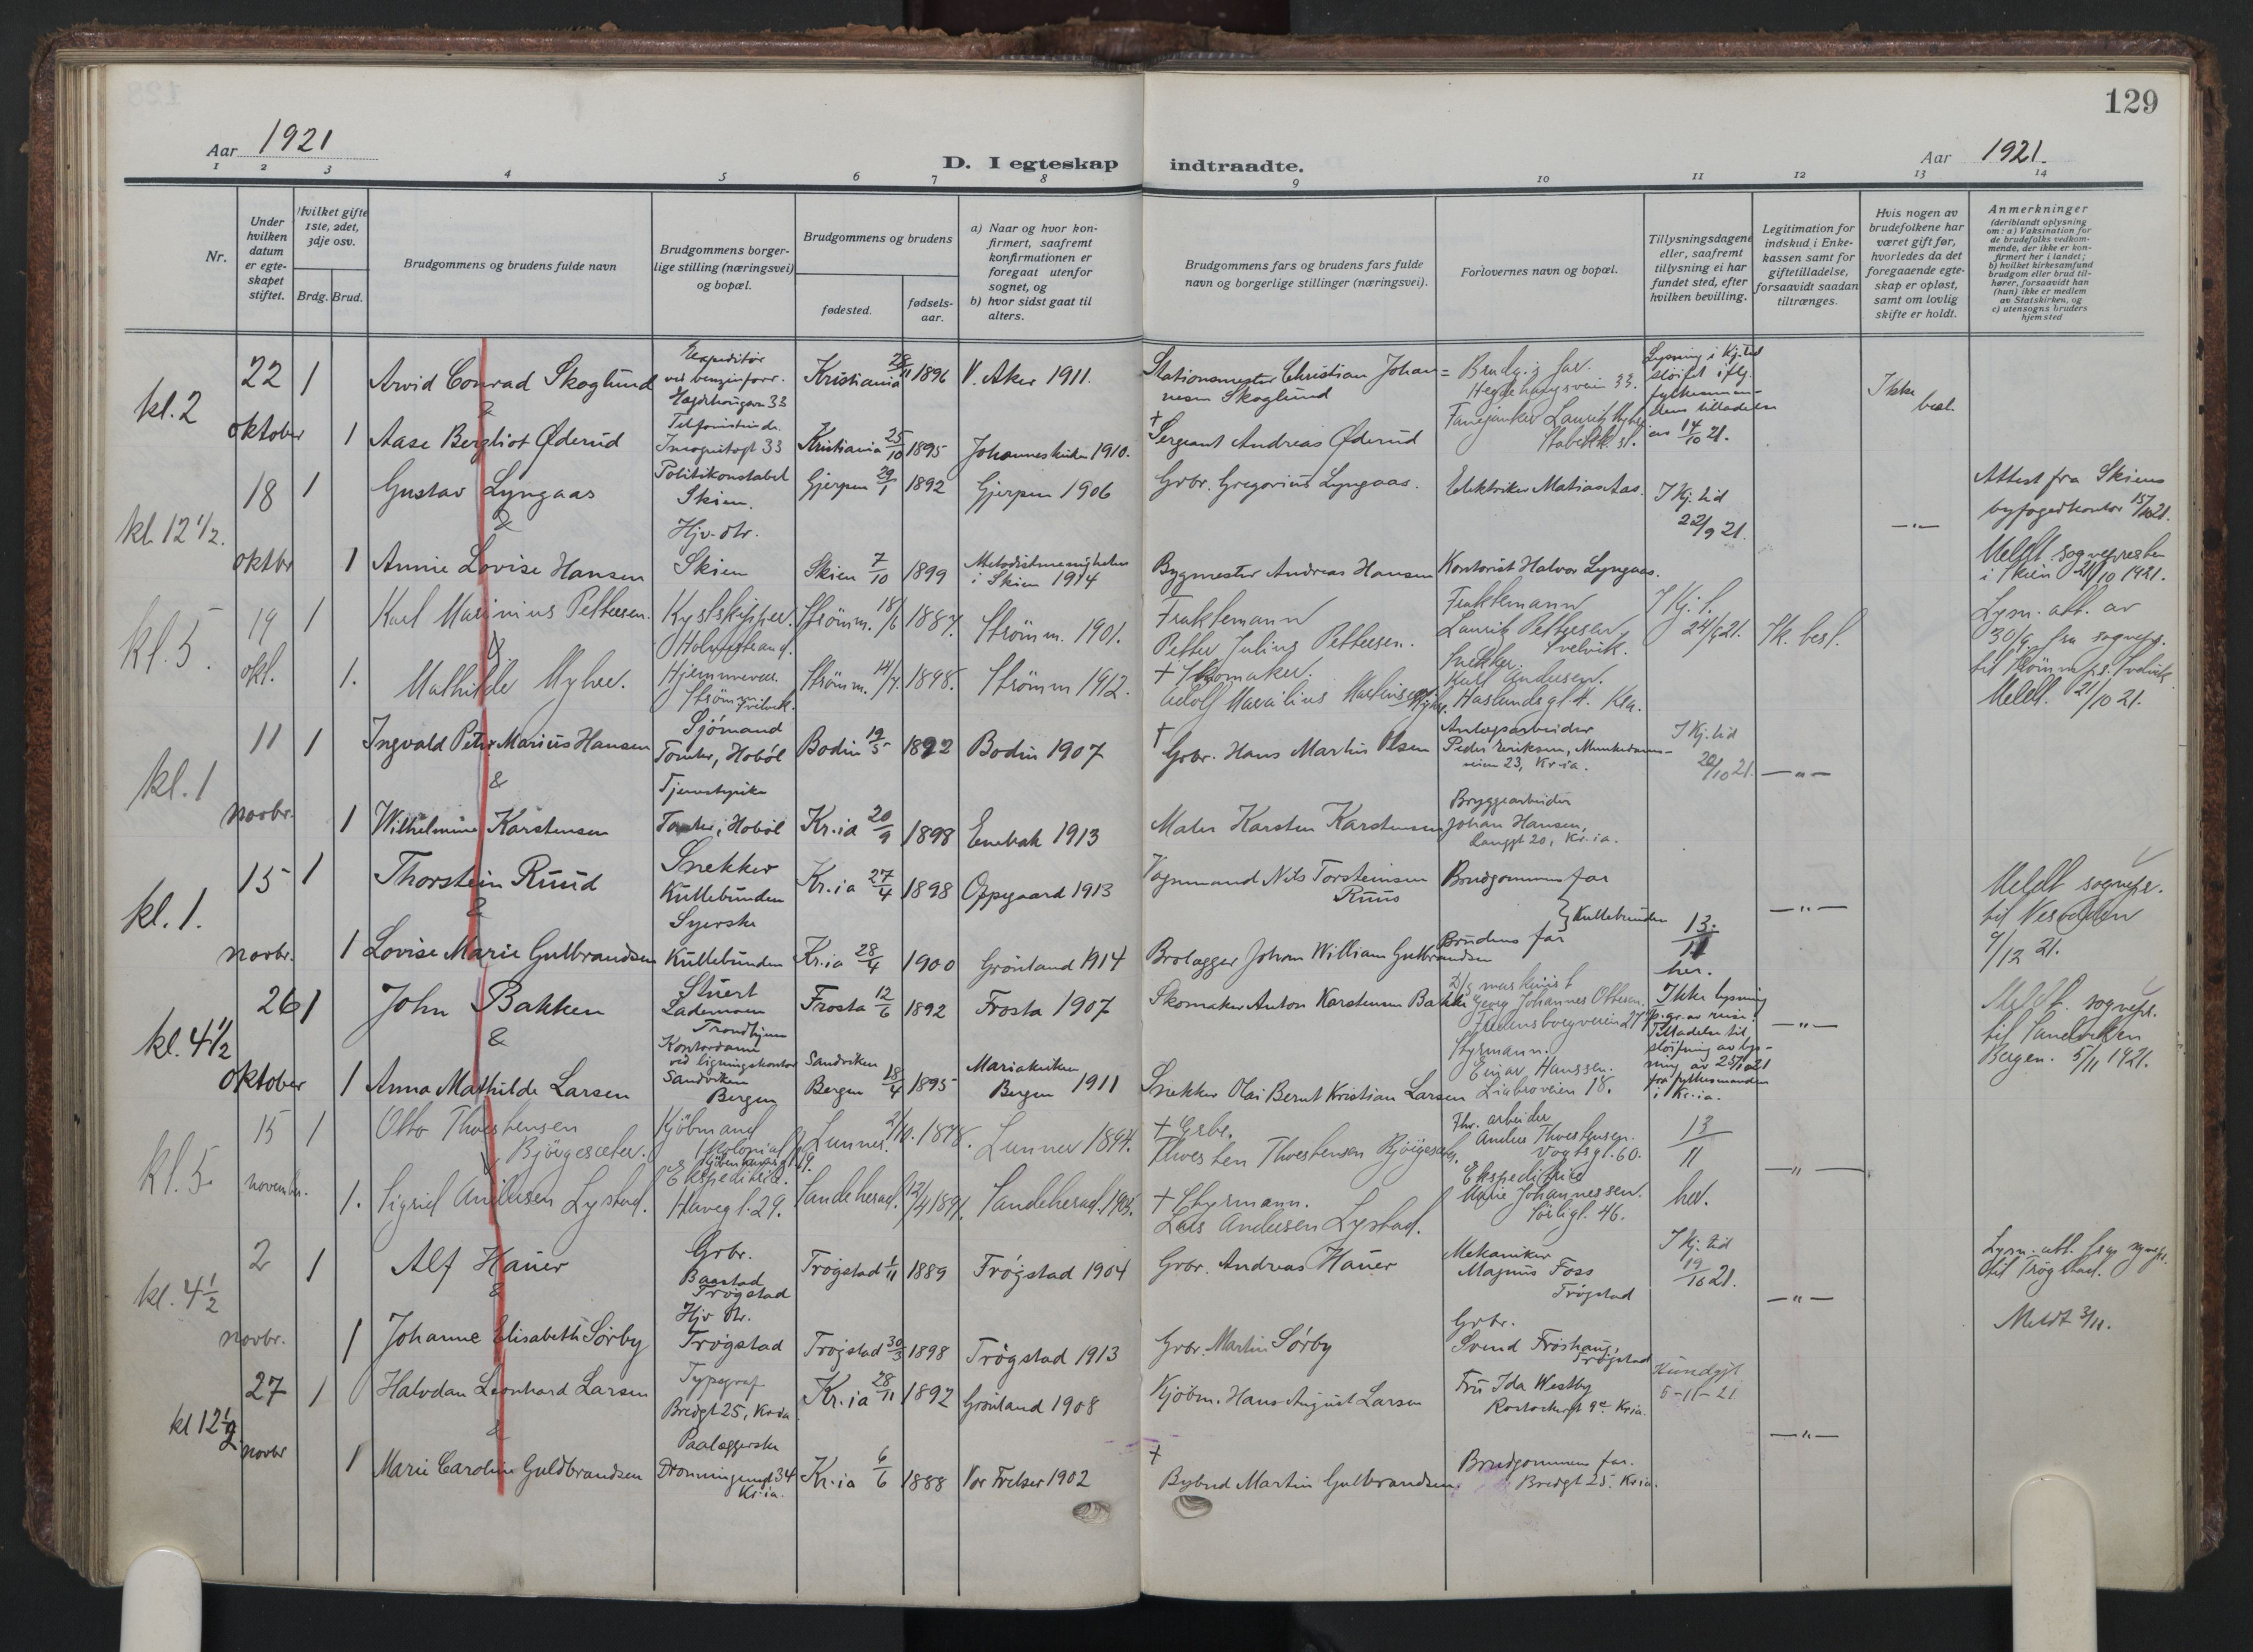 129
Aar 1921
D. I egteskap indtraadte.
Aar 1921.
1 2 3 4 5 6 7 8 9 10 11 12 13 14
Nr.
Under hvilken datum er egteskapet stiftet.
Hvilket gifte 1ste, 2det, 3dje osv.
Brdg. Brud.
Brudgommens og brudens fulde navn
Brudgommens borgerlige stilling (næringsvei) og bopæl.
Brudgommens og brudens
fødested.
fødselsaar.
a) Naar og hvor konfirmert, saafremt konfirmationen er foregaat utenfor sognet, og
b) hvor sidst gaat til alters.
Brudgommens fars og brudens fars fulde navn og borgerlige stillinger (næringsvei).
Forlovernes navn og bopæl.
Tillysningsdagene eller, saafremt tillysning ei har fundet sted, efter hvilken bevilling.
Legitimation for indskud i Enkekassen samt for giftetilladelse, forsaavidt saadan tiltrænges.
Hvis nogen av brudefolkene har været gift før, hvorledes da det foregaaende egteskap er opløst, samt om lovlig skifte er holdt.
Anmerkninger
(deriblandt oplysning om: a) Vaksination for de brudefolks vedkommende, der ikke er konfirmert her i landet; b) hvilket kirkesamfund brudgom eller brud tilhører, forsaavidt han (hun) ikke er medlem av Statskirken, og c) utensogns bruders hjemsted
kl. 2
22 oktober
1 Arvid Conrad Skoglund
Expeditør ved benzinforr.
Hegdehougsv. 33
Kristiania 28/11 1896
V. Aker 1911.
Stationsmester Christian Johannesen Skoglund
Brudg.s far. Hegdehaugsveien 33.
Lysning i Kj. tid sløifet iflg. fylkesmandens tilladelse av 14/10 21.
Ikke besl.
&
1 Aase Bergliot Øderud
Telefonistinde
Incognitogt 33
Kristiania 25/10 1895
Johanneskirken 1910.
† Sergeant Andreas Øderud
Fanejunker Lauritz
Stabekk st.
kl. 12 1/2.
18 oktbr
1 Gustav Lyngaas
Politikonstabel
Skien.
Gjerpen 29/1 1892
Gjerpen 1906
Grbr. Gregorius Lyngaas.
Elektriker Matias Aas.
I Kj. tid
22/9 21.
—"—
Attest fra Skiens byfogedkontor 15/10 21.
&
1 Annie Lovise Hansen
Hjv. dtr.
Skien
Skien 7/10 1899
Metodistmenigheten i Skien 1914
Bygmester Andreas Hansen
Kontorist Halvor Lyngaas.
Meldt sognepresten i Skien 21/10 1921.
kl. 5.
19 okt.
1 Karl Marinius Pettersen.
Kystskipper.
Holmestrand.
Strømm. 18/6 1887.
Strømm. 1901.
Fraktemann
Petter Julius Pettersen.
Fraktemann
Lauritz Pettersen
Svelvik.
I Kj. t.
24/9 21.
Sk. besl.
Lysn. att. av 30/9 fra sognepr. til Strømm ps. Svelvik
&
1. Mathilde Myhre.
Hjemmevær.
Strømm Svelvik.
Strømm. 14/7 1898.
Strømm 1912.
† Skomaker.
Adolf Martinsen Myhre.
Snekker.
Karl Andersen.
Haslundsgt. 4. Kra.
Meldt 21/10 21.
kl. 1
11 novbr.
1 Ingvald Peter Marius Hansen
Sjømand
Tomter, Hobøl
Bodin 19/5 1892
Bodin 1907
† Grbr. Hans Martin Olsen
Anlægsarbeider
Peder Eriksen, Munkedamsveien 23, Kr.ia.
I Kj. tid
20/10 21.
—"—
&
1 Wilhelmine Karstensen
Tjenestepike
Tomter, Hobøl
Kr.ia 20/9 1898
Enebak 1913
Maler Karsten Karstensen
Bryggearbeider
Johan Hansen,
Langgt 20, Kr.ia.
kl. 1.
15 novbr.
1 Thorstein Ruud
Snekker
Kullebunden
Kr.ia 27/4 1898
Oppegaard 1913
Vognmand Nils Torsteinsen Ruus
Brudgommens far
—"—
Meldt sognepr. til Nesodden 9/12 21.
&
1 Lovise Marie Gulbrandsen
Syerske
Kullebunden
Kr.ia 28/4 1900
Grønland 1914
Brolægger Johan William Gulbrandsen
Brudens far
} Kullebunden
13/11 her.
kl. 4 1/2
26 oktober
1 John Bakken
Stuert
Lademoen
Trondhjem
Frosta 12/6 1892
Frosta 1907
Skomaker Anton Karstensen Bakke
D/s maskinist
Georg Johannes Ottesen.
Fredensborgveien 27
Ikke lysning p. gr. av reise. Tilladelse til sløifning av lysning av 25/10 21 fra fylkesmanden i Kr.ia.
—"—
Meldt sognepr. til Sandviken Bergen. 5/11 1921.
&
1 Anna Mathilde Larsen
Kontordame ved ligningskontor
Sandviken
Bergen
Sandviken Bergen 18/4 1895
Mariakirken Bergen 1911
Snekker Olai Bernt Kristian Larsen
Styrmann.
Einar Hanssen.
Liabroveien 18.
kl. 5
15 november.
1 Otto Thorstensen Bjørgesæter.
Kjøbmand
(Kolonial)
Lunner 2/10. 1878.
Lunner 1894.
† Grbr.
Thorsten Thorstensen Bjørgesæter.
Fhv. arbeider
Anders Thorstensen.
Vogtsgt. 60.
13/11
her.
—"—
1. Sigrid Andersen Lystad.
Ekspeditrice.
Havegt. 29.
Sandeherad. 12/4 1891.
Sandeherad. 1905.
† Styrmann.
Lars Andersen Lystad.
Ekspeditrice
Marie Johannessen.
Sørligt. 46.
kl. 4 1/2
2 novbr.
1 Alf Hauer
Grbr.
Baastad
Trøgstad
Trøgstad 1/11 1889
Trøgstad 1904
Grbr. Andreas Hauer
Mekaniker
Magnus Foss
Trøgstad
I Kj. tid
19/10 21.
—"—
Lysn. att. fra sognepr. til Trøgstad.
&
1 Johanne Elisabeth Sørby
Hjv. dtr.
Trøgstad
Trøgstad 30/3 1898
Trøgstad 1913
Grbr. Martin Sørby
Grbr.
Svend Frøshaug,
Trøgstad
Meldt 3/11.
kl 12 1/2
27 novbr
1 Halvdan Leonhard Larsen
Typograf
Bredgt 25, Kr.ia
Kr.ia 28/11 1892
Grønland 1908
Kjøbm. Hans August Larsen
Fru Ida Westby
Rostockergt 9 Kr.ia.
Kundgj. 6-11-21
—"—
&
1 Marie Caroline Guldbrandsen
Paalæggerske
Dronningensgt 34
Kr.ia.
Kr.ia 6/6 1888
Vor Frelser 1902
†
Bybud Martin Gulbrandsen.
Brudgommens far.
Bredgt 25. Kria.